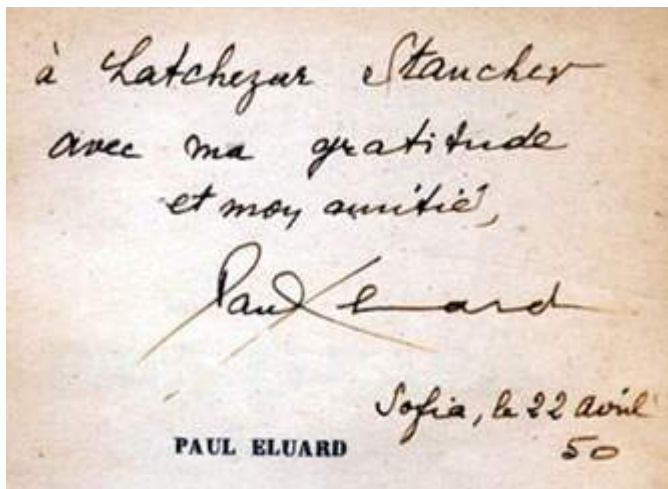 à Latchezar Stanchev
avec ma gratitude
et mon amitié,
Paul Eluard
Sofia, le 22 avril
PAUL ELUARD
50